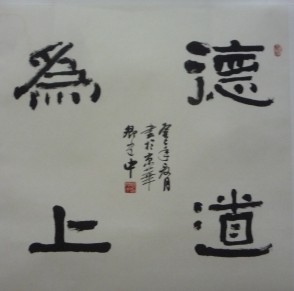 德道
為上
癸巳年夏月
書於京華
中